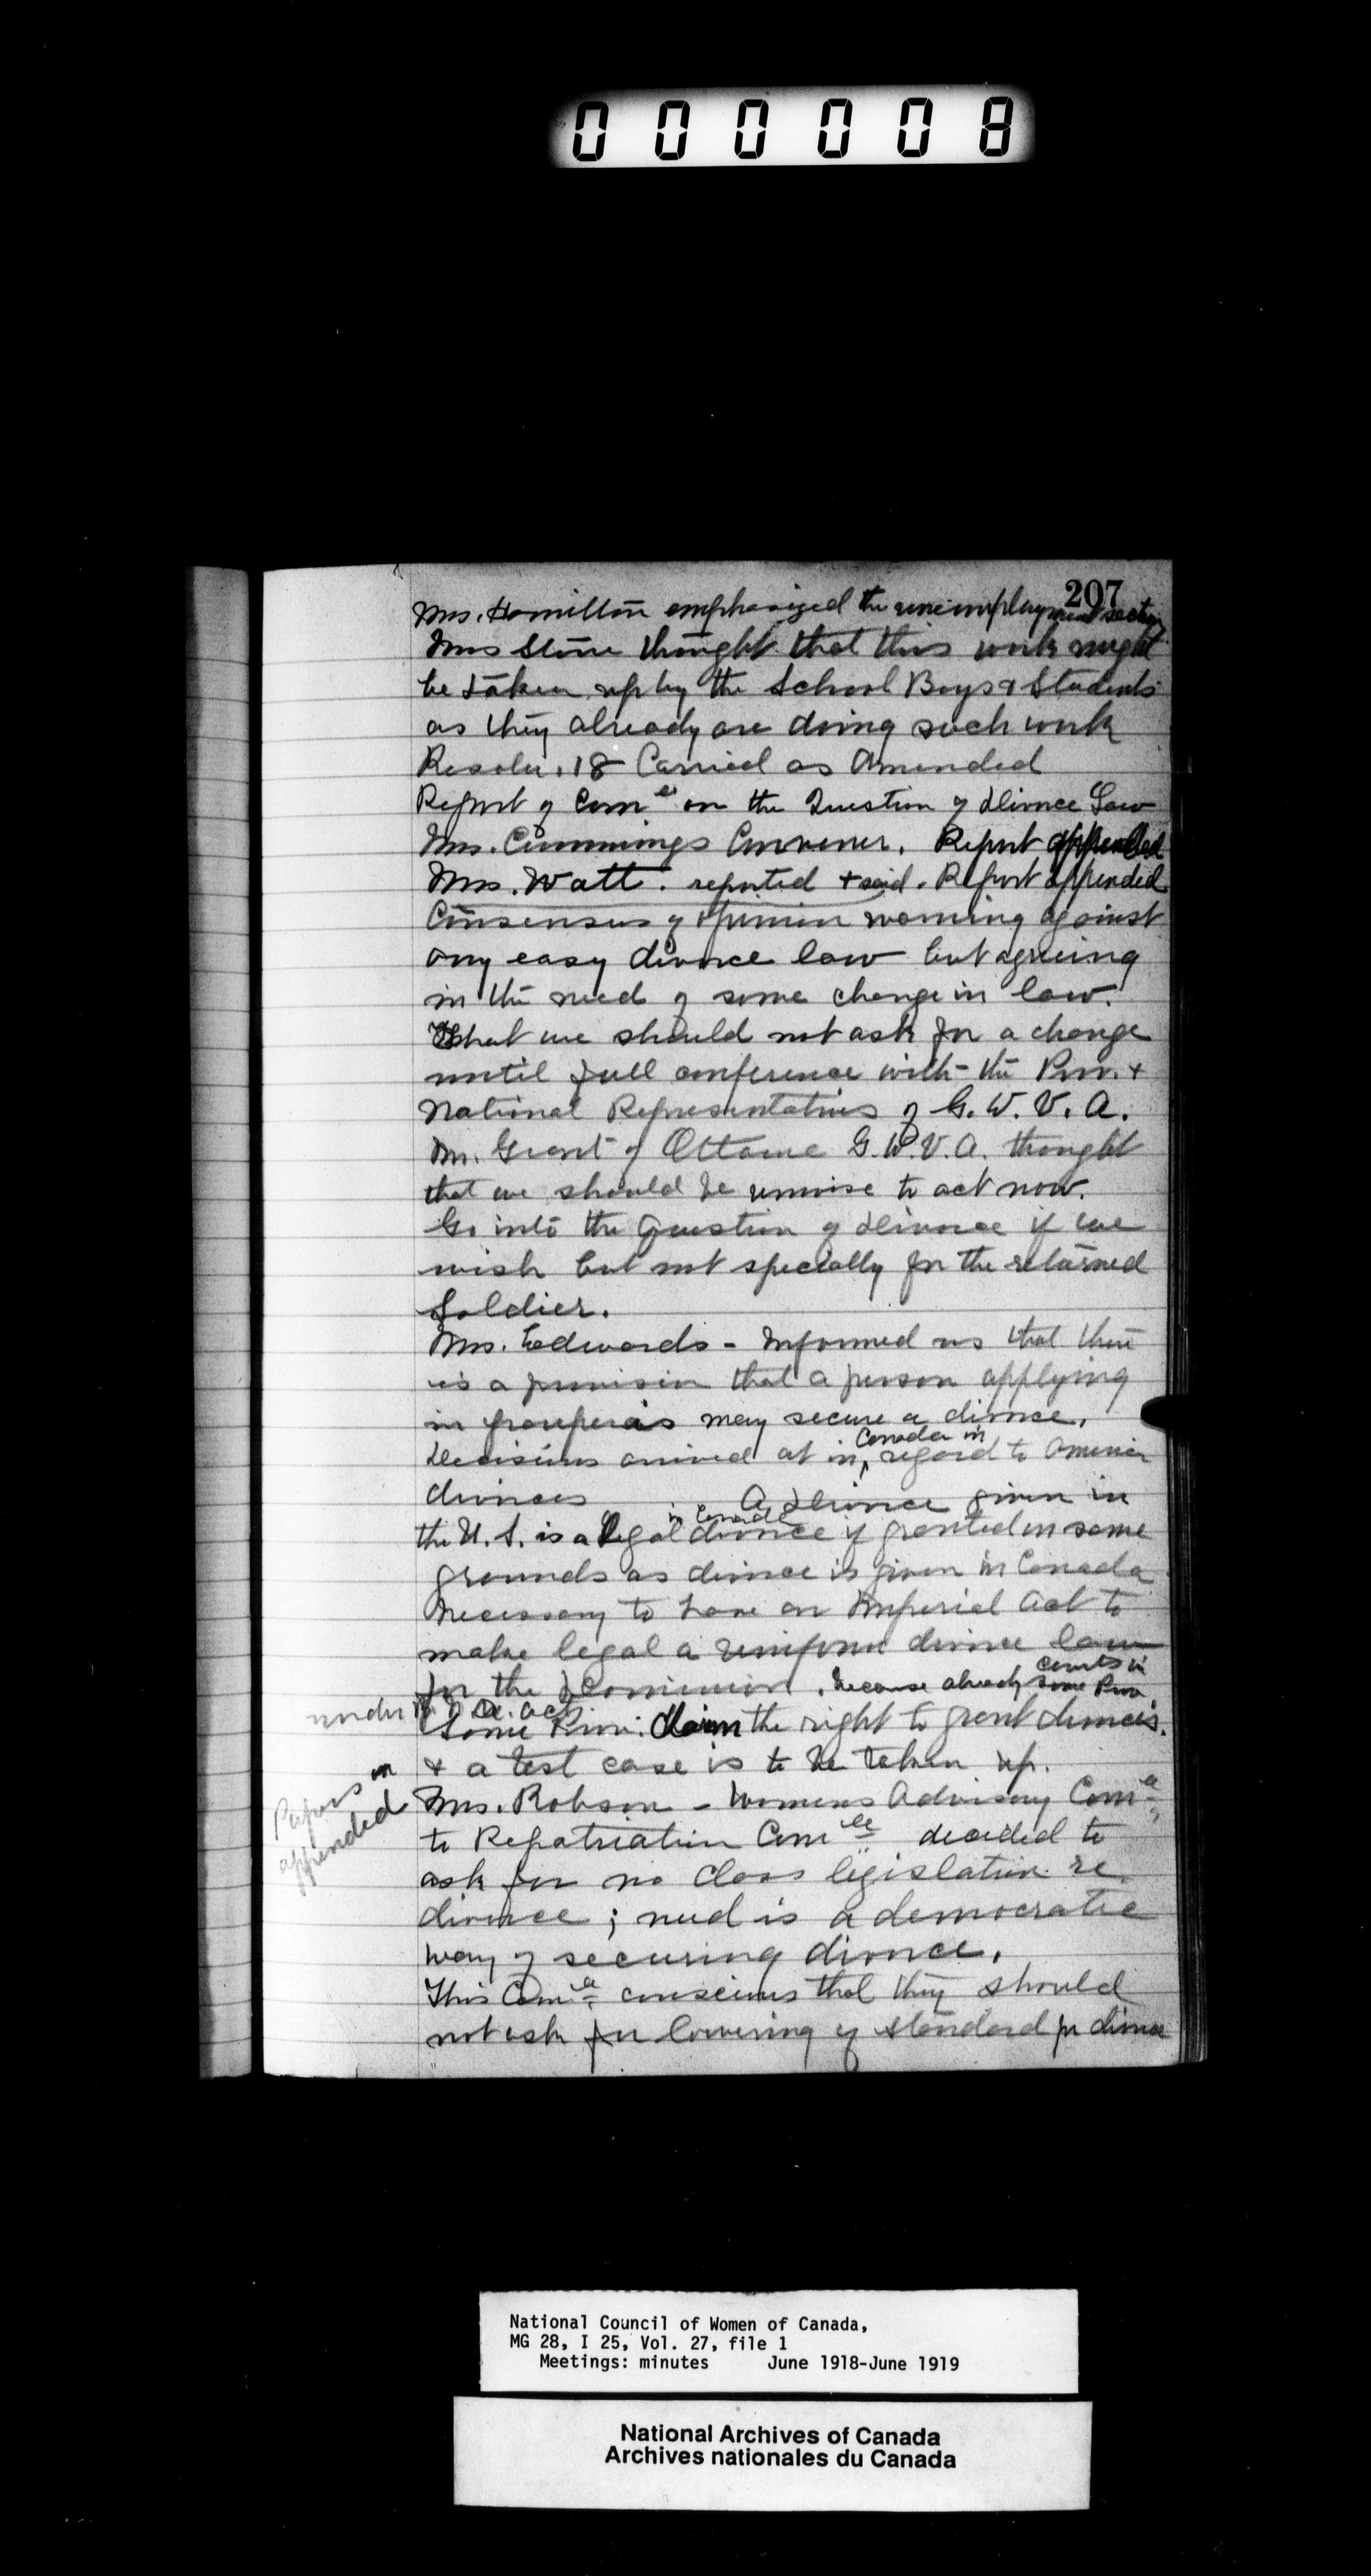 000008
207
Mrs. Hamilton emphasized the unemployment section
Mrs Stone thought that this work might
be taken up by the School Boys & Students
as they already are doing such work
Resolu. 18 Carried as Amended
Report of Comee on the Question of Divorce Law
Mrs. Cummings Convener. Report appended
Mrs. Watt. reported + said. Report appended
Consensus of opinion warning against
any easy divorce law but agreeing
in the need of some change in law.
That we should not ask for a change
until full conference with the Prov. +
National Representatives of G. W. V. A.
Mr. Grant of Ottawa G. W. V. A. thought
that we should be unwise to act now.
Go into the Question of divorce if we
wish but not specially for the returned
Soldier.
Mrs. Edwards - Informed us that there
is a provision that a person applying
in pauperis may secure a divorce.
Canada in
Decisions arrived at in regard to America
divorces A divorce given in
in Canada
the U. S. is a legal divorce if granted on same
grounds as divorce is given in Canada
Necessary to have an Imperial Act to
make legal a uniform divorce law
courts in
for the Dominion. because already some Prov.
under B. N. A. act
Some Prov. claim the right to grant divorces.
+ a test case is to be taken up.
Papers
appended
Mrs. Robson - Womens Advisory Comee
to Repatriation Comee decided to
ask for no class legislation re
divorce; need is a democratic
way of securing divorce.
This Comee conscious that they should
not ask for lowering of standard for divorce
National Council of Women of Canada,
MG 28, I 25, Vol. 27, file 1
Meetings: minutes June 1918-June 1919
National Archives of Canada
Archives nationales du Canada